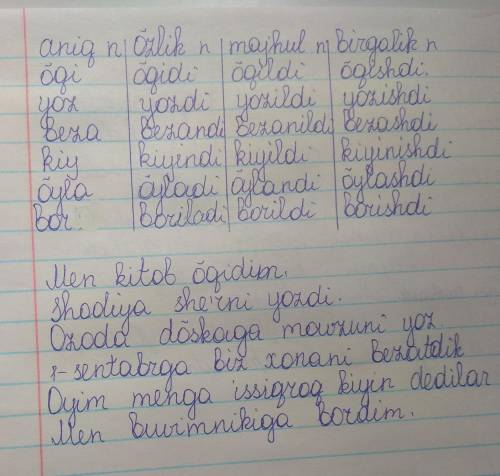 aniq n | ōzlik n | majhul n | birgalik n
ōqi | ōqidi | ōqildi | ōqishdi.
yoz | yozdi | yozildi | yozishdi
beza | bezandi | bezanildi | bezashdi
kiy | kiyindi | kiyildi | kiyinishdi
ōyla | ōyladi | ōylandi | ōylashdi
bor. | boriladi | borildi | borishdi
Men kitob ōqidim.
Shodiya she'rni yozdi.
Ozoda dōskaga mavzuni yoz
1-sentabrga biz xonani bezatdik
Oyim menga issiqroq kiyin dedilar
Men buvimnikiga bordim.